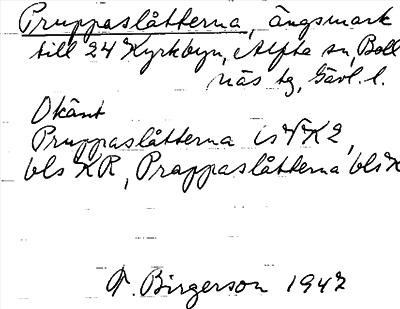 Pruppaslåtterna, ängsmark
till 24 Kyrkbyn, Alfta sn, Boll
näs tg, Gävl. l.
Okänt
Pruppaslåtterna is VK2,
bls KR, Prappaslåtterna bls K
T. Birgerson 1947